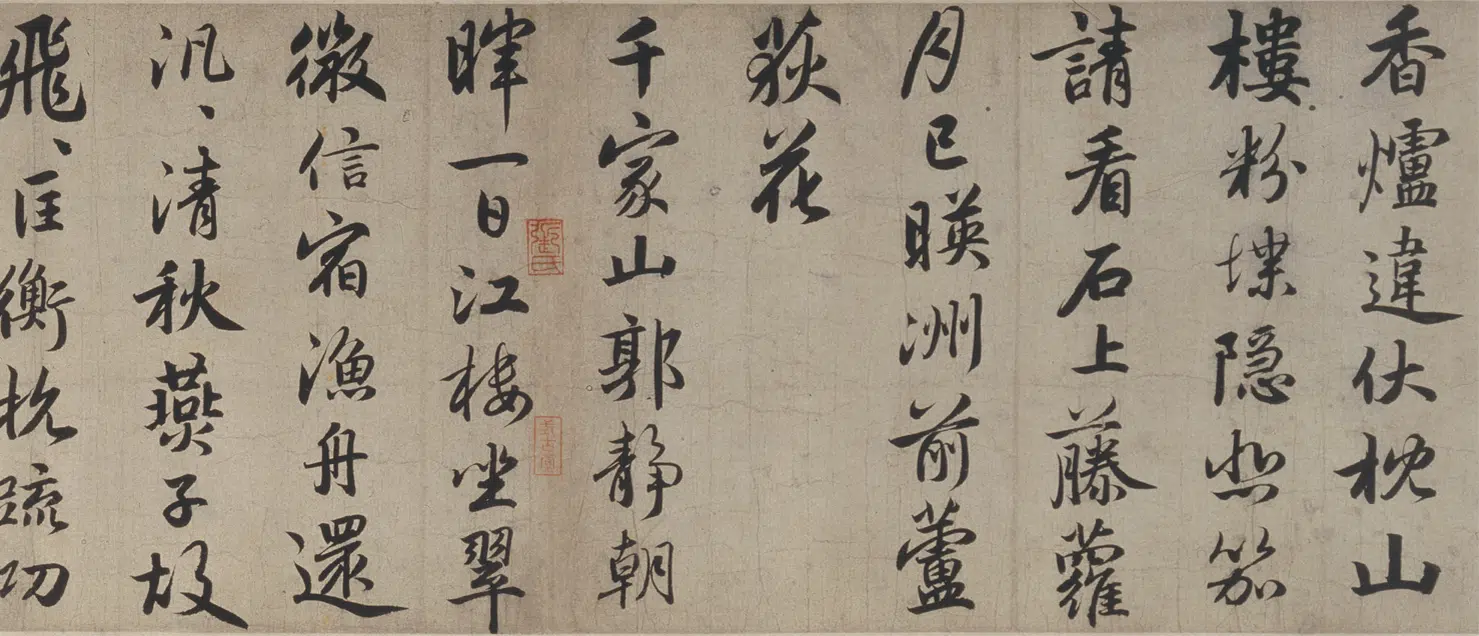 香爐違伏枕山
樓粉堞隐悲笳
請看石上藤蘿
月已暎洲前蘆
荻花
千家山郭静朝
暉一日江楼坐翠
微信宿漁舟還
汎、清秋燕子故
飛、匡衡抗疏功